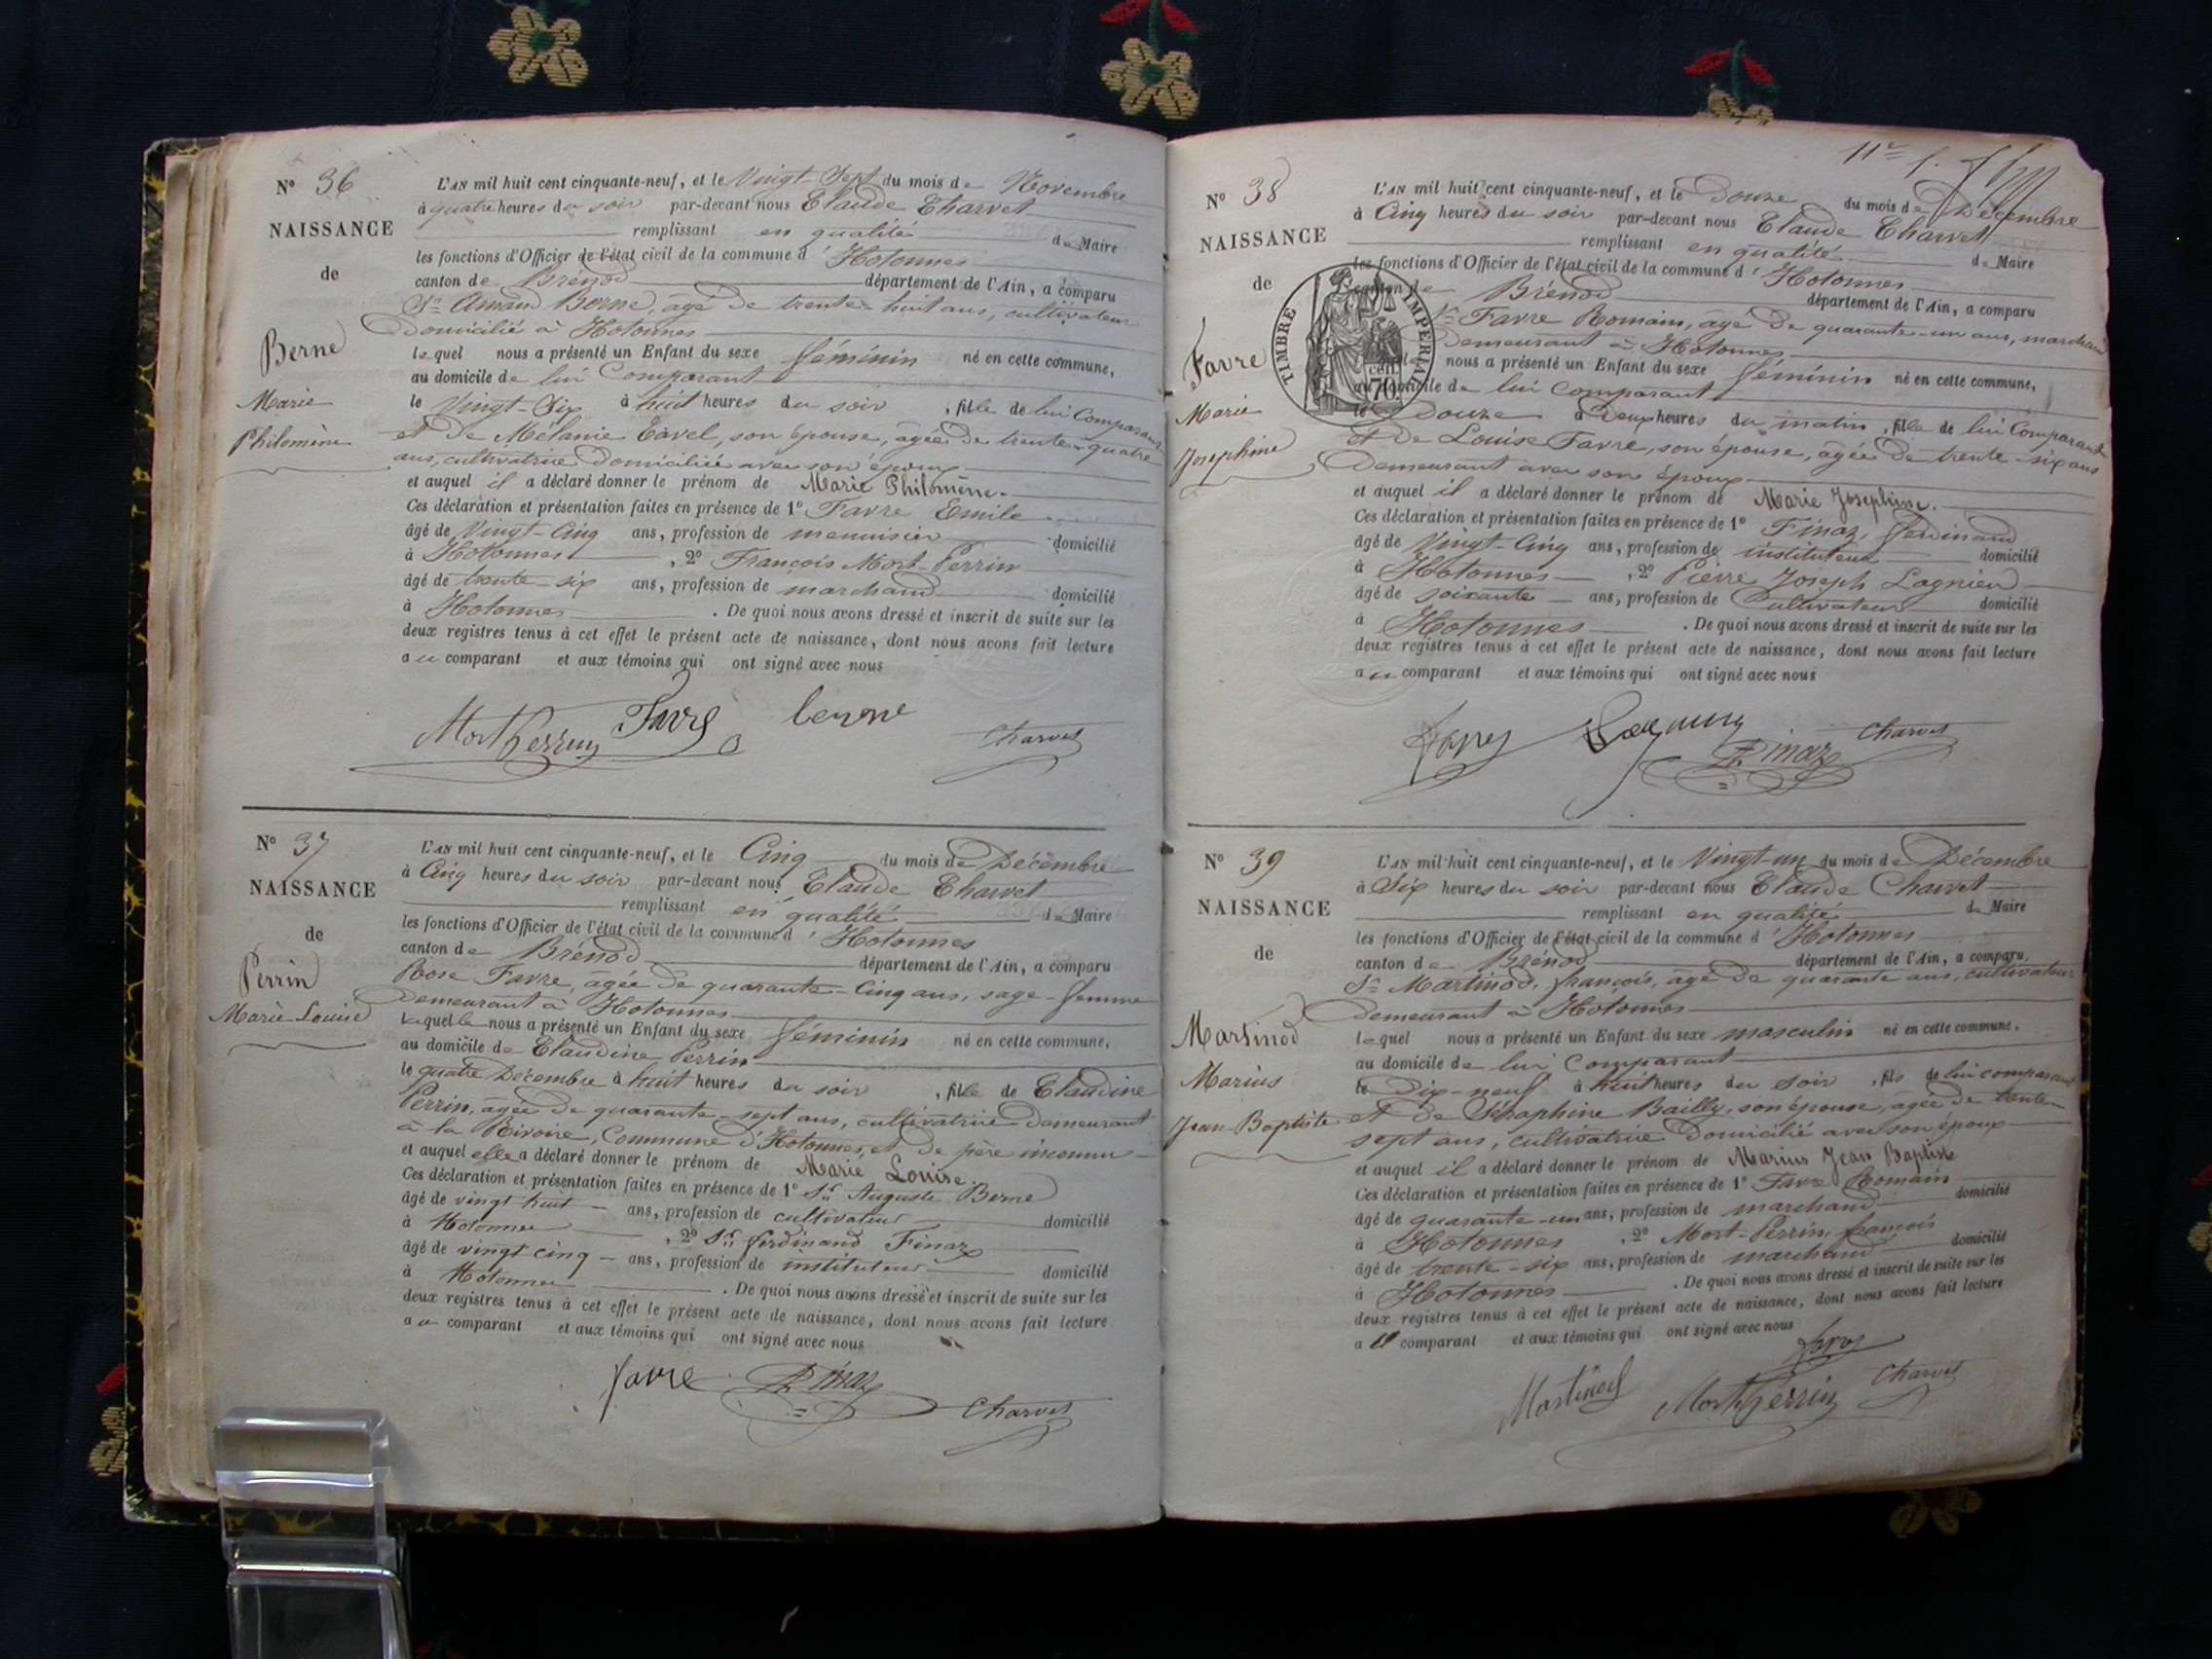 N° 36
NAISSANCE
de
Berne
Marie
Philomène
L'AN mil huit cent cinquante-neuf, et le Vingt-Sept du mois de Novembre
à quatre heures du soir par-devant nous Claude Charvet
remplissant en qualité de Maire
les fonctions d'Officier de l'état civil de la commune d'Hotonnes
canton de Brénod département de l'Ain, a comparu
Sr Amand Berne, âgé de trente-huit ans, cultivateur
domicilié à Hotonnes
lequel nous a présenté un Enfant du sexe féminin né en cette commune,
au domicile de lui Comparant
le Vingt-Six à huit heures du soir, fille de lui Comparant
et de Mélanie Cavel, son épouse, agée de trente-quatre
ans, cultivatrice domiciliée avec son époux
et auquel il a déclaré donner le prénom de Marie Philomène.
Ces déclaration et présentation faites en présence de 1° Favre Emile
âgé de Vingt-Cinq ans, profession de menuisier domicilié
à Hotonnes, 2° François Mort-Perrin
âgé de trente-six ans, profession de marchand domicilié
à Hotonnes. De quoi nous avons dressé et inscrit de suite sur les
deux registres tenus à cet effet le présent acte de naissance, dont nous avons fait lecture
au comparant et aux témoins qui ont signé avec nous
MortPerrin Favre berne Charvet
N° 37
NAISSANCE
de
Perrin
Marie Louise
L'AN mil huit cent cinquante-neuf, et le Cinq du mois de Décembre
à Cinq heures du soir par-devant nous Claude Charvet
remplissant en qualité de Maire
les fonctions d'Officier de l'état civil de la commune d'Hotonnes
canton de Brénod département de l'Ain, a comparu
Rose Favre, âgée de quarante-Cinq ans, sage-femme
demeurant à Hotonnes
laquelle nous a présenté un Enfant du sexe féminin né en cette commune,
au domicile de Claudine Perrin
le quatre Décembre à huit heures du soir, fille de Claudine
Perrin, âgée de quarante-sept ans, cultivatrice demeurant
à la Rivoire, Commune d'Hotonnes, et de père inconnu
et auquel elle a déclaré donner le prénom de Marie Louise.
Ces déclaration et présentation faites en présence de 1° Sr Auguste Berne
âgé de vingt huit ans, profession de cultivateur domicilié
à Hotonnes, 2° Sr ferdinand Finaz
âgé de vingt cinq ans, profession de instituteur domicilié
à Hotonnes. De quoi nous avons dressé et inscrit de suite sur les
deux registres tenus à cet effet le présent acte de naissance, dont nous avons fait lecture
au comparant et aux témoins qui ont signé avec nous
favre Finaz Charvet
N° 38
NAISSANCE
de
Favre
Marie
Josephine
TIMBRE IMPERIAL
70 cen
L'AN mil huit cent cinquante-neuf, et le Douze du mois de Décembre
à Cinq heures du soir par-devant nous Claude Charvet
remplissant en qualité de Maire
les fonctions d'Officier de l'état civil de la commune d'Hotonnes
canton de Brénod département de l'Ain, a comparu
Sr Favre Romain, âgé de quarante-un ans, marchand
demeurant à Hotonnes
lequel nous a présenté un Enfant du sexe féminin né en cette commune,
au domicile de lui Comparant
le Douze à deux heures du matin, fille de lui Comparant
et de Louise Favre, son épouse, âgée de trente-six ans
demeurant avec son époux
et auquel il a déclaré donner le prénom de Marie Josephine.
Ces déclaration et présentation faites en présence de 1° Finaz, ferdinand
âgé de Vingt-Cinq ans, profession de instituteur domicilié
à Hotonnes, 2° Pierre Joseph Lagnieu
âgé de soixante ans, profession de Cultivateur domicilié
à Hotonnes. De quoi nous avons dressé et inscrit de suite sur les
deux registres tenus à cet effet le présent acte de naissance, dont nous avons fait lecture
au comparant et aux témoins qui ont signé avec nous
Finaz Charvet
N° 39
NAISSANCE
de
Martinod
Marius
Jean-Baptiste
L'AN mil huit cent cinquante-neuf, et le Vingt-un du mois de Décembre
à Six heures du soir par-devant nous Claude Charvet
remplissant en qualité de Maire
les fonctions d'Officier de l'état civil de la commune d'Hotonnes
canton de Brénod département de l'Ain, a comparu
Sr Martinod, françois, âgé de quarante ans, cultivateur
demeurant à Hotonnes
lequel nous a présenté un Enfant du sexe masculin né en cette commune,
au domicile de lui Comparant
le Dix-neuf à huit heures du soir, fils de lui comparant
et de Séraphine Bailly, son épouse, agée de trente-
sept ans, cultivatrice domicilié avec son époux
et auquel il a déclaré donner le prénom de Marius Jean Baptiste
Ces déclaration et présentation faites en présence de 1° Favre Romain
âgé de quarante-un ans, profession de marchand domicilié
à Hotonnes, 2° Mort-Perrin, françois
âgé de trente-six ans, profession de marchand domicilié
à Hotonnes. De quoi nous avons dressé et inscrit de suite sur les
deux registres tenus à cet effet le présent acte de naissance, dont nous avons fait lecture
au comparant et aux témoins qui ont signé avec nous
Martinod MortPerrin Charvet